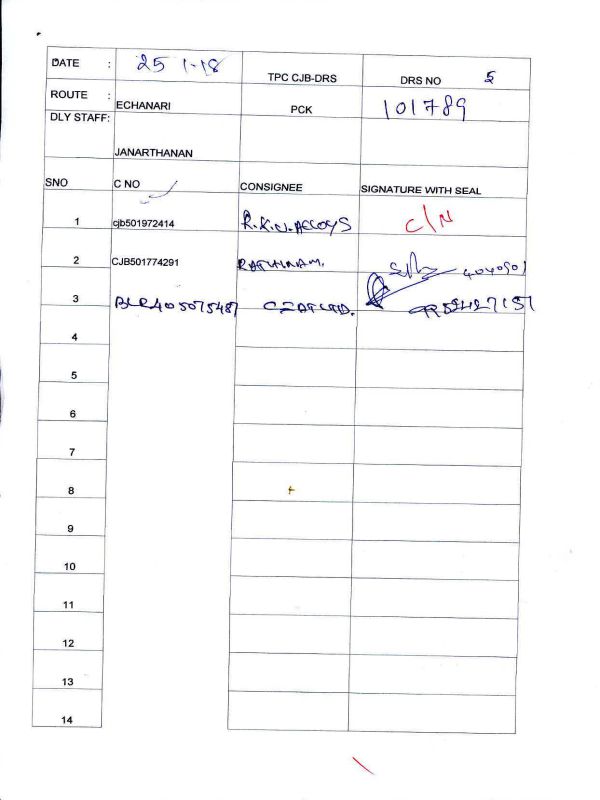 DATE : 25 1-18 TPC CJB-DRS DRS NO 5
ROUTE : ECHANARI PCK 101789
DLY STAFF:
JANARTHANAN
SNO C NO CONSIGNEE SIGNATURE WITH SEAL
1 cjb501972414 R.K.N.ALLOYS C/N
2 CJB501774291 RATHINAM.
3 BLR405075487 CEAT LTD.
4
5
6
7
8
9
10
11
12
13
14